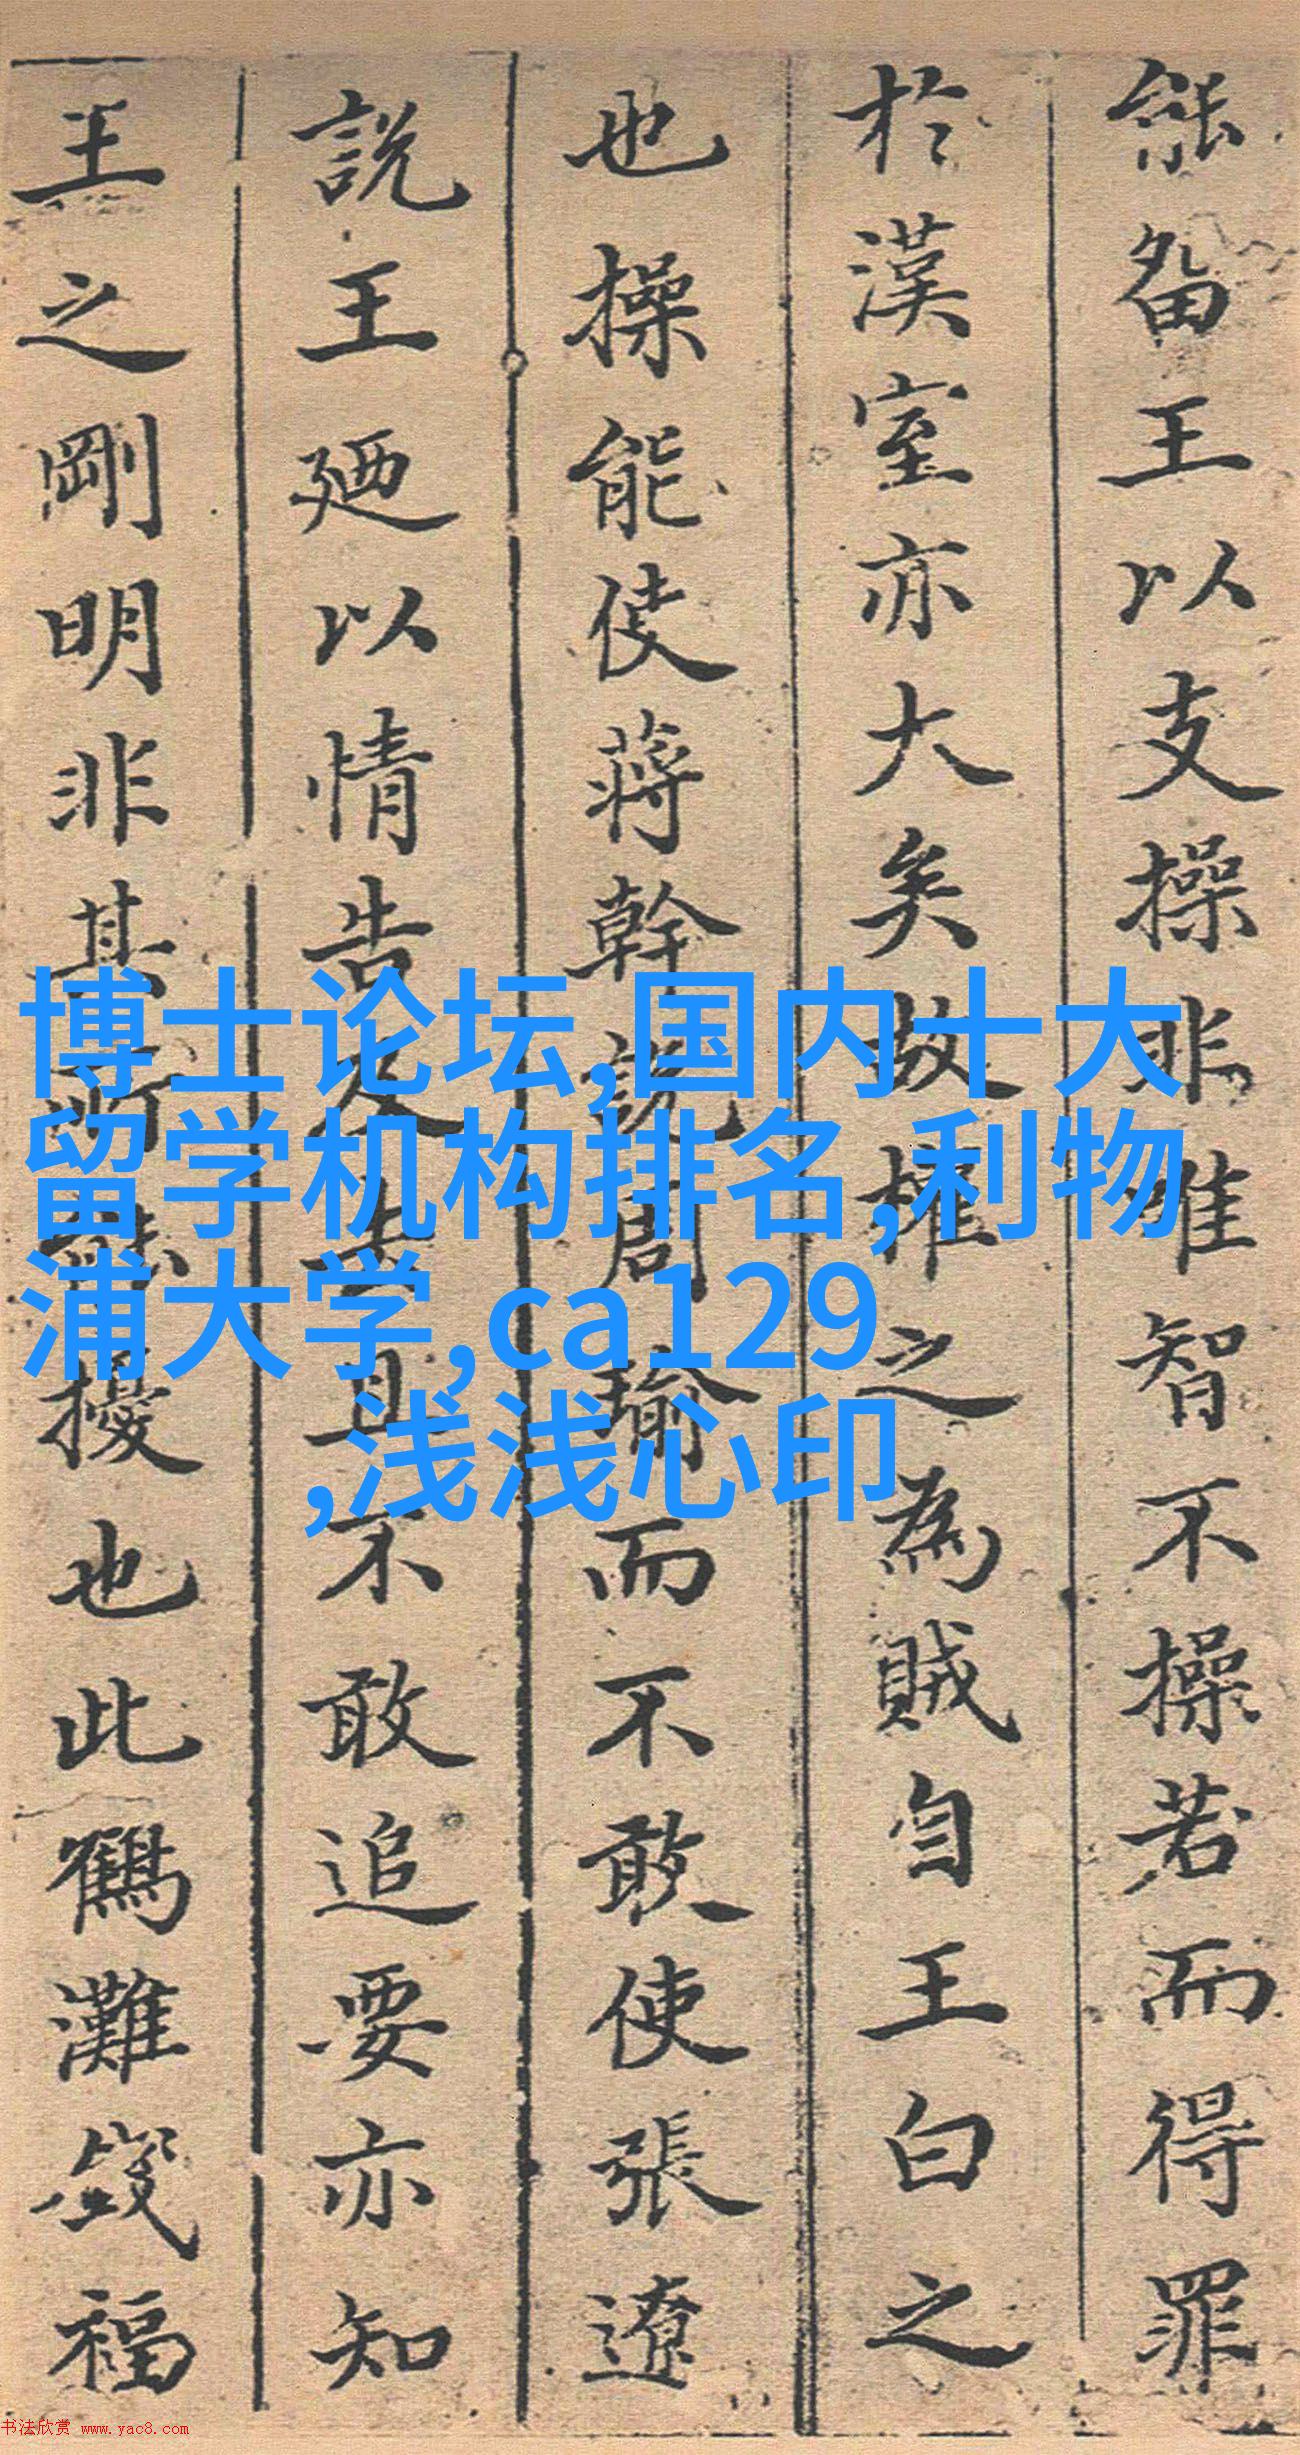 能留王以支操非惟智不操若而得罪
於漢室亦大矣故權之為賊自王白之
也操能使蔣幹說周瑜而不敢使張遼
說王廼以情告及去且不敢追要亦知
王之剛明非其所擾也此鶴灘錢福
博士论坛,国内十大
留学机构排名,利物
浦大学,ca129
,浅浅心印
书法欣赏 www.yac8.com